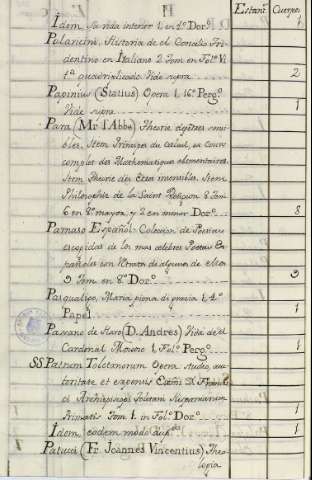 Estant.ˢ Cuerpos
Idem Su vida interior 1. en 4º Dorº 1
Palavicini, Historia de el Concilio Tri
dentino en Italiano 2 Tom en Folº Vi
tª quadruplicado Vide supra 2
Papinius (Statius) Opera 1. 16º Pergº 1
Vide supra
Para (Mr. l'Abbé) Theorie des etres sensi
bles. Item Principes du Calcul, ou Cours
complet des Mathematiques elementaires.
Item Theorie des Etres insensibles. Item
Philosophie de la Saint Religion 8 Tom
6 en 8º mayor, y 2 en menor Dorº 8
Parnaso Español: Coleccion de Poesias
escogidas de los mas celebres Poetas Es
pañoles con Retratos de algunos de ellos
9 Tom. en 8º Dorº 9
Pasqualigo, Maria piena di gracia 1. 4º
Papel 1
Passano de Haro (D. Andres) Vida de el
Cardenal Morone 1. Folº Pergº 1
SS Patrum Toletanorum Opera studio, auc
toritate et expensis Exmi D.
et Archiepiscopi Toletani Hispaniarum
Primatis Tom. 1. in Folº Dorº 1
Idem eodem modo 1
Patuzi (Fr. Joannes Vincentius) Theo
logia